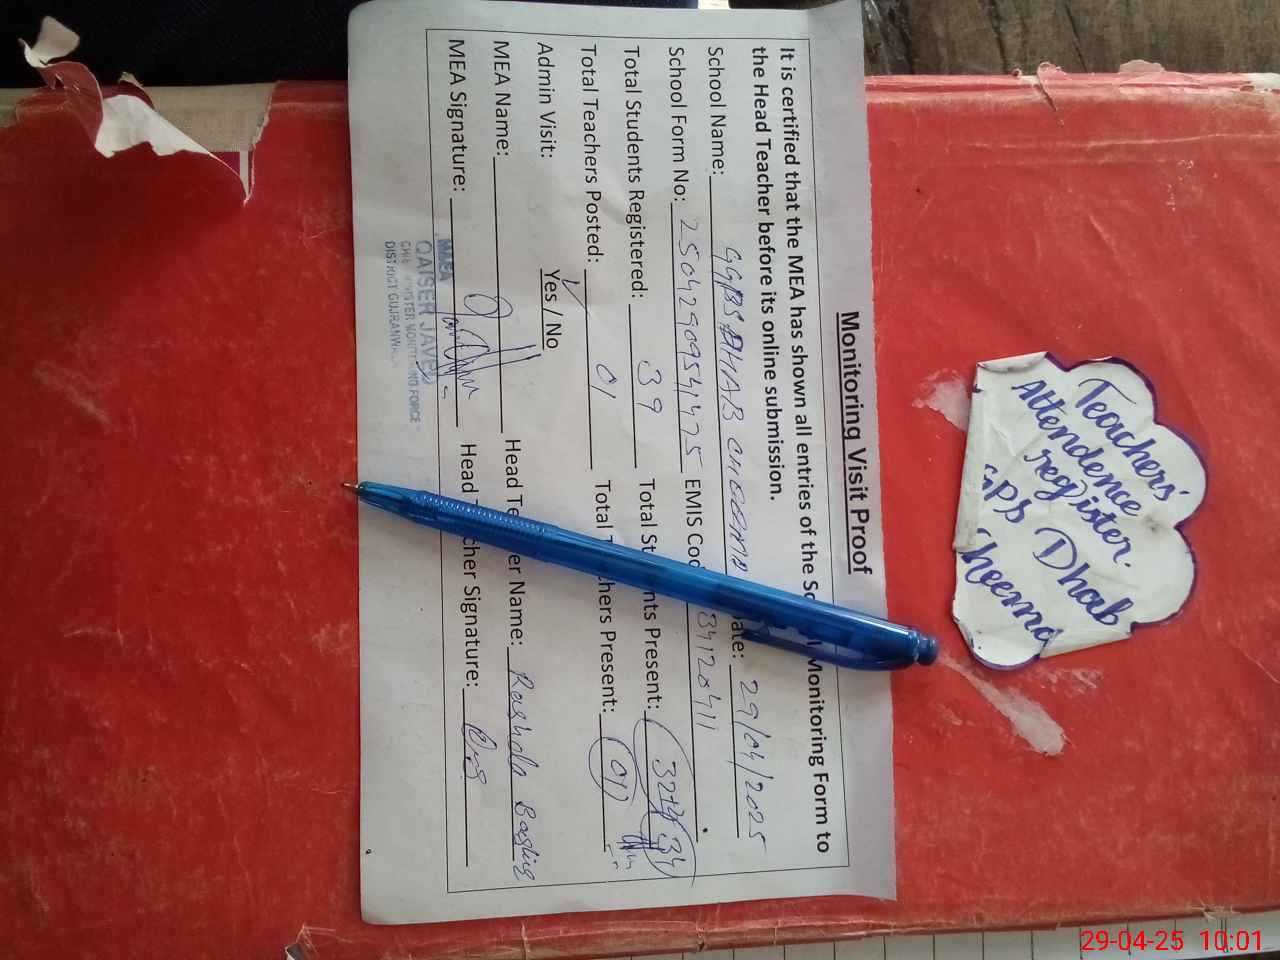 Monitoring Visit Proof
It is certified that the MEA has shown all entries of the Sc l Monitoring Form to
the Head Teacher before its online submission.
School Name: GGPS DHAB CHEEMA ate: 29/04/2025
School Form No: 25042909541475 EMIS Cod 34120411
Total Students Registered: 39 Total St nts Present: 32+2 34
Total Teachers Posted: 01 Total T chers Present: 01
Admin Visit: Yes / No
MEA Name: Head Te er Name: Rashda
MEA Signature: Head T cher Signature:
MEA
QAISER JAVED
CHIEF MINISTER MONITORING FORCE
DISTRICT GUJRANWALA
Teachers'
Attendence
register.
GPS Dhab
Cheema
29-04-25 10:01